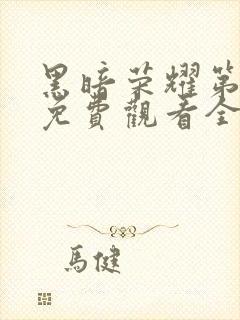 黑暗荣耀第
免費觀看全
馬健